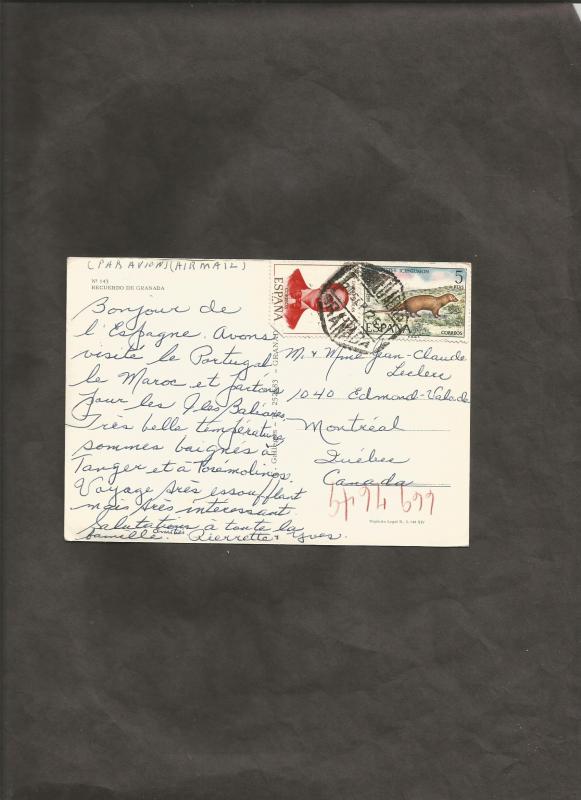 (PAR AVION) (AIR MAIL)
Nº 143
RECUERDO DE GRANADA
Bonjour de
l'Espagne. Avons
visité le Portugal
le Maroc et partons
pour les Iles Baléares
Très belle température
sommes baignés à
Tanger et à Torémolinos.
Voyage très essoufflant
mais très intéressant
Salutations à toute la
famille. amitiés Pierrette & Yves.
ESPAÑA
5
PTAS
ESPAÑA
CORREOS
GRANADA
M. & Mme Jean-Claude
Leclerc
1040 Edmond-Valade
Montréal
Québec
Canada
Depósito Legal B.
XIV